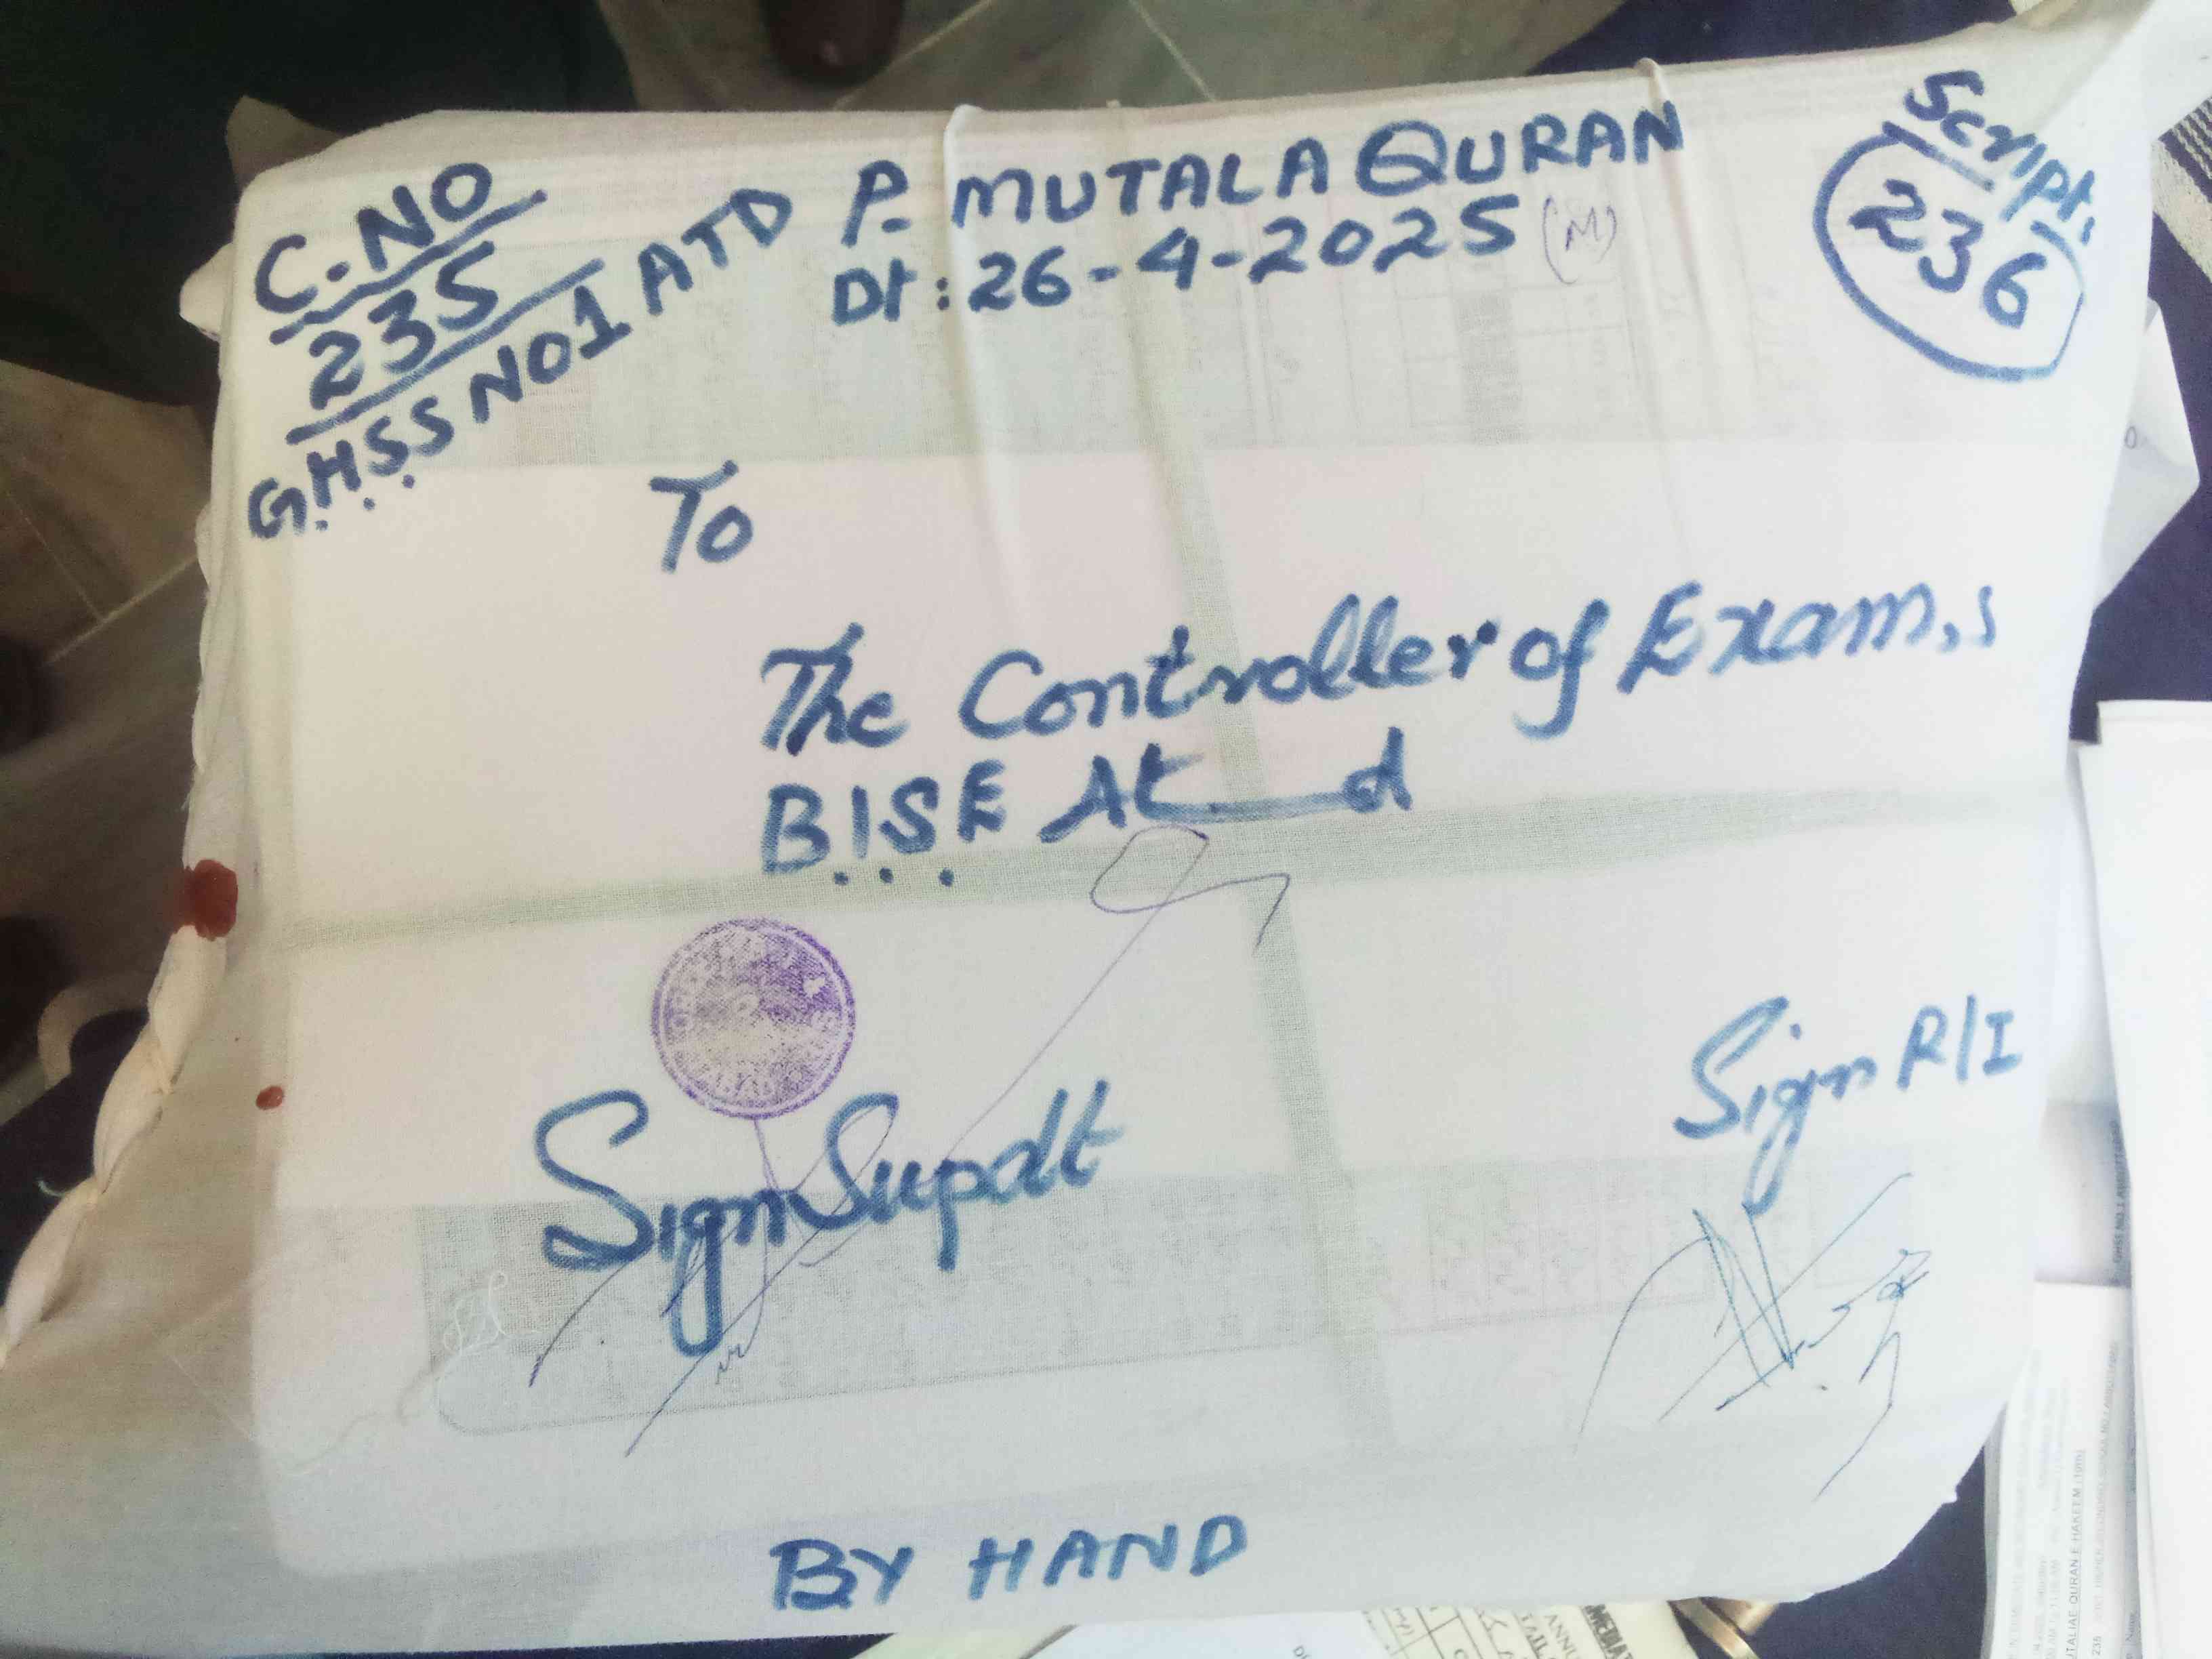 C.NO
235
G.H.S.S NO1 ATD
P. MUTALA QURAN
Dt: 26-4-2025 (M)
Script.
236
To
The Controller of Exam,s
B.I.S.E At d
Sign Supdt
Sign R/I
BY HAND